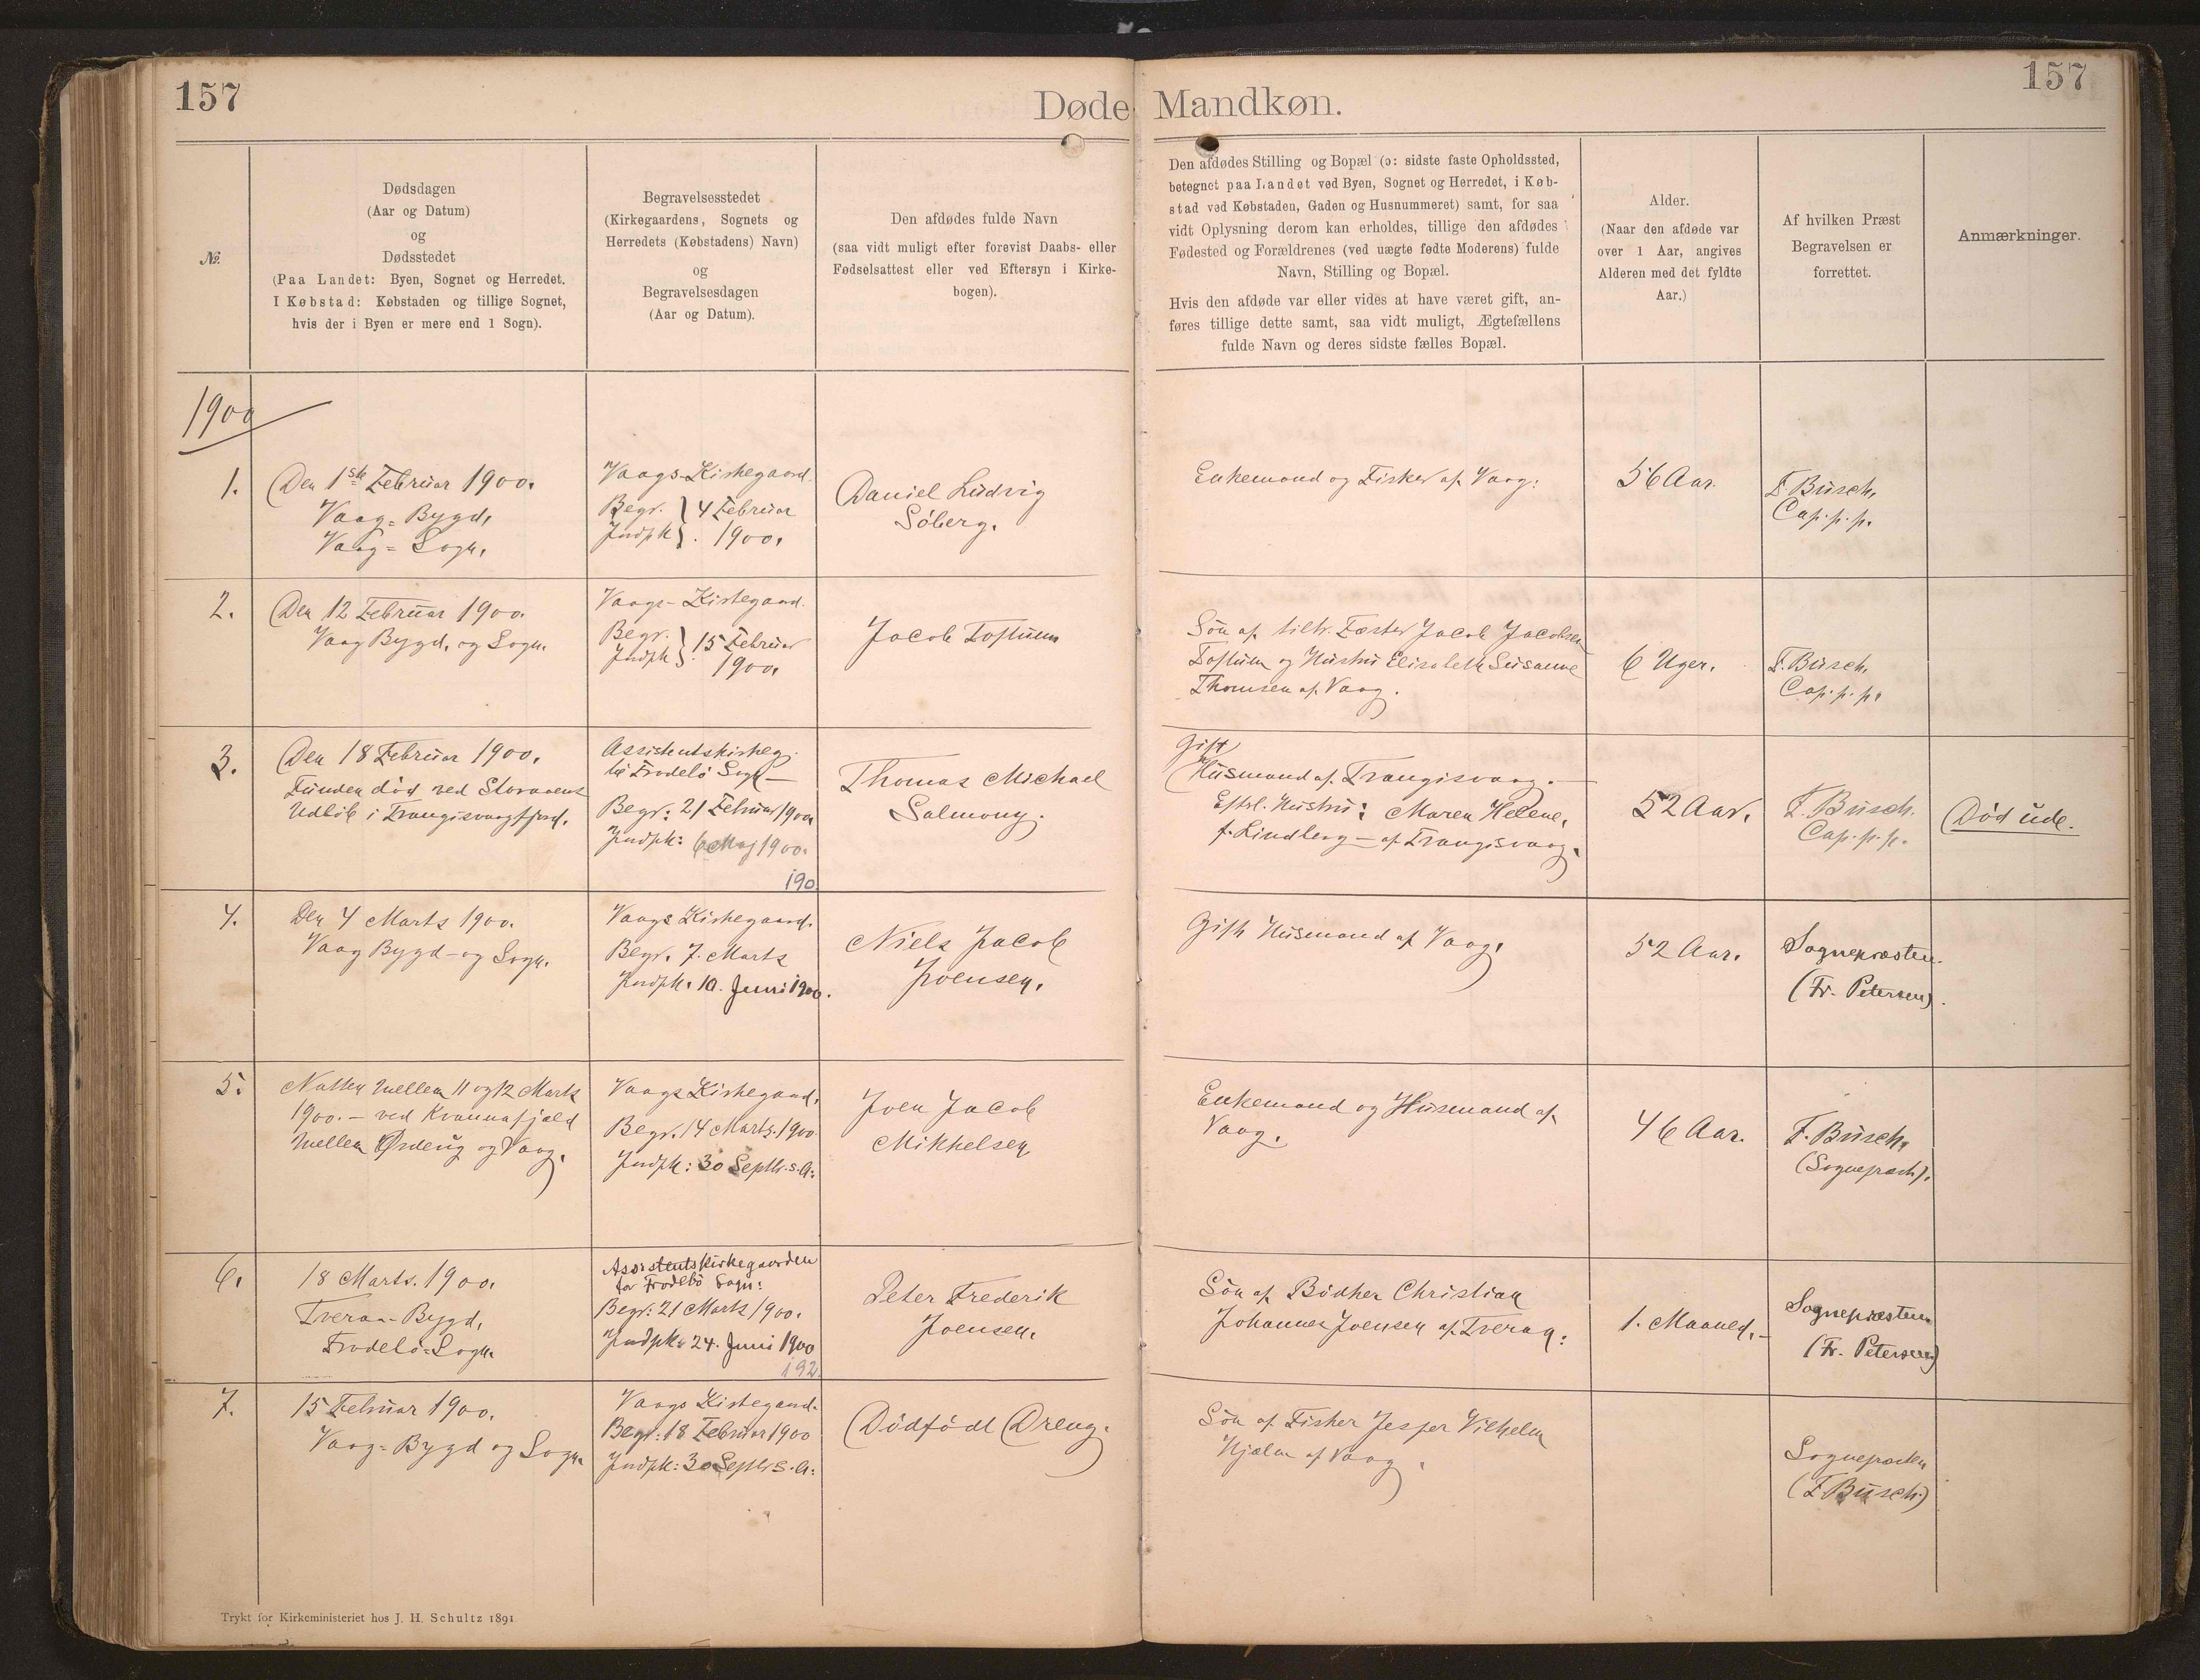 157
157
Døde Mandkøn.
№
Dødsdagen
(Aar og Datum)
og
Dødsstedet
(Paa Landet: Byen, Sognet og Herredet.
I Købstad: Købstaden og tillige Sognet,
hvis der i Byen er mere end 1 Sogn).
Begravelsesstedet
(Kirkegaardens, Sognets og
Herredets (Købstadens) Navn)
og
Begravelsesdagen
(Aar og Datum).
Den afdødes fulde Navn
(saa vidt muligt efter forevist Daabs- eller
Fødselsattest eller ved Eftersyn i Kirke-
bogen).
Den afdødes Stilling og Bopæl (ɔ: sidste faste Opholdssted,
betegnet paa Landet ved Byen, Sognet og Herredet, i Køb-
stad ved Købstaden, Gaden og Husnummeret) samt, for saa
vidt Oplysning derom kan erholdes, tillige den afdødes
Fødested og Forældrenes (ved uægte fødte Moderens) fulde
Navn, Stilling og Bopæl.
Hvis den afdøde var eller vides at have været gift, an-
føres tillige dette samt, saa vidt muligt, Ægtefællens
fulde Navn og deres sidste fælles Bopæl.
Alder.
(Naar den afdøde var
over 1 Aar, angives
Alderen med det fyldte
Aar.)
Af hvilken Præst
Begravelsen er
forrettet.
Anmærkninger.
1900
1.
Den 1ste Februar 1900.
Vaag-Bygd,
Vaag-Sogn.
Vaags-Kirkegaard.
Begr. } 4 Februar
Jndpk } 1900.
Daniel Ludvig
Söberg.
Enkemand og Fisker af Vaag.
56 Aar.
F. Busch,
Cap. p. p.
2.
Den 12 Februar 1900.
Vaag Bygd. og Sogn.
Vaags-Kirkegaard.
Begr. } 15 Februar
Jndpk } 1900.
Jacob Toftum
Sön af tiltr. Fæster Jacob Jacobsen
Toftum og Hustru Elisabeth Susanne
Thomsen af Vaag.
6 Uger.
F. Busch,
Cap. p. p.
3.
Den 18 Februar 1900.
Funden död ved Storaaens
Udlöb i Trangisvaagfjord.
Assistentskirkeg.
til Frodebö Sogn
Begr: 21 Februar 1900
Jndpk: 6 Maj 1900.
190
Thomas Michael
Salmony.
Gift
Husmand af Trangisvaag.
Efterl. Hustru: Maren Helene,
f. Lindberg — af Trangisvaag.
52 Aar.
F. Busch.
Cap. p. p.
Död ude.
4.
Den 4 Marts 1900.
Vaag Bygd- og Sogn.
Vaags Kirkegaard.
Begr. 7. Marts
Jndpk. 10. Juni 1900.
Niels Jacob
Joensen.
Gift Husmand af Vaag.
52 Aar.
Sognepræsten.
(Fr. Petersen).
5.
Natten mellem 11 og 12 Marts
1900. — ved Kvannafjæld
mellem Ørdevig og Vaag.
Vaags Kirkegaard.
Begr. 14 Marts. 1900
Jndpk: 30 Septbr. s. A:
Joen Jacob
Mikkelsen
Enkemand og Husmand af
Vaag.
46 Aar.
F. Busch,
(Sognepræst).
6.
18 Marts. 1900.
Tveraa-Bygd,
Frodebö-Sogn
Assistentskirkegaarden
for Frodebö Sogn:
Begr: 21 Marts 1900.
Jndpk: 24. Juni 1900
192
Peter Frederik
Joensen.
Sön af Bödker Christian
Johannes Joensen af Tveraa.
1. Maaned.
Sognepræsten
(Fr. Petersen)
7.
15 Februar 1900.
Vaag-Bygd og Sogn
Vaags Kirkegaard.
Begr: 18 Februar 1900
Jndpk: 30 Septbr s. A:
Dödfödt Dreng.
Sön af Fisker Jesper Vilhelm
Hjælm af Vaag.
Sognepræsten
(F Busch)
Trykt for Kirkeministeriet hos J. H. Schultz 1891